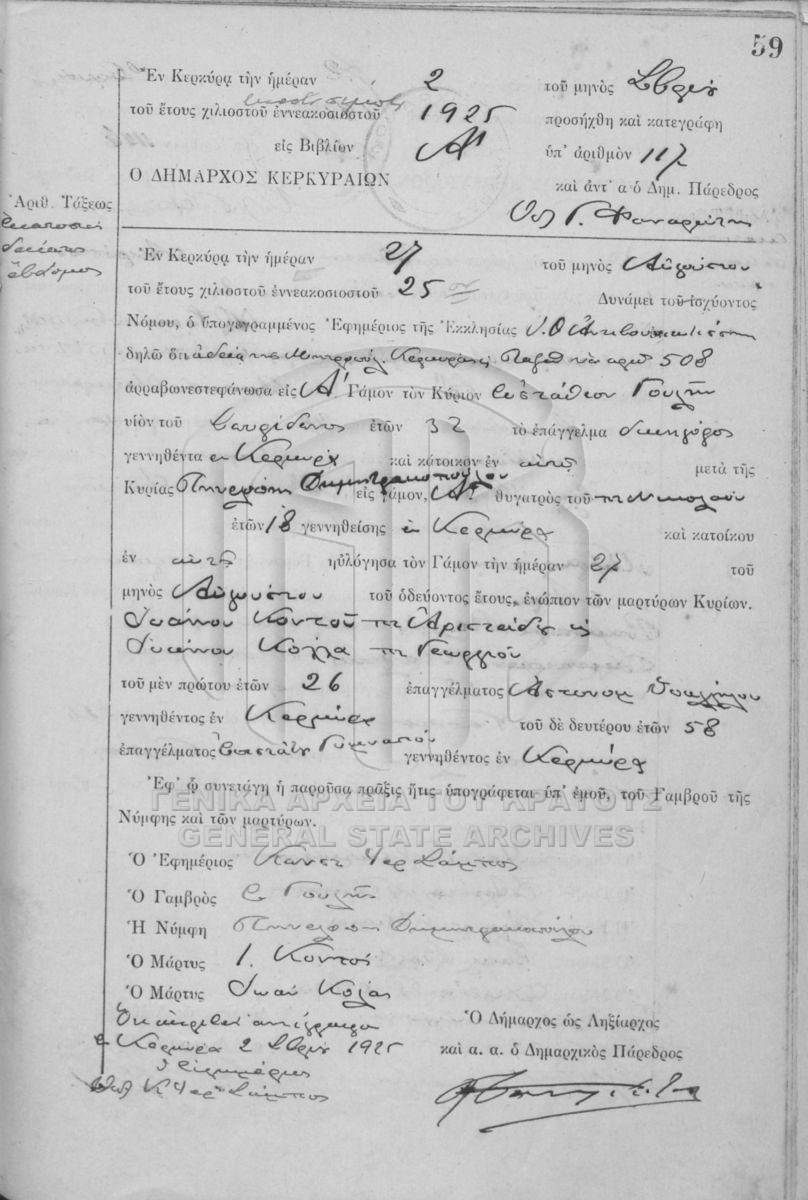 59
Ἐν Κερκύρᾳ τὴν ἡμέραν 2 τοῦ μηνὸς
τοῦ ἔτους χιλιοστοῦ ἐννεακοσιοστοῦ εἰκοστοῦ 1925 προσήχθη καὶ κατεγράφη
εἰς Βιβλίον Α' ὑπ' ἀριθμὸν 117
Ο ΔΗΜΑΡΧΟΣ ΚΕΡΚΥΡΑΙΩΝ
καὶ ἀντ' α ὁ Δημ. Πάρεδρος
Ἀριθ. Τάξεως
ἑκατοστὴ
δεκάτη
ἕβδομος
Ἐν Κερκύρᾳ τὴν ἡμέραν 27 τοῦ μηνὸς Αὐγούστου
τοῦ ἔτους χιλιοστοῦ ἐννεακοσιοστοῦ 25 Δυνάμει τοῦ ἰσχύοντος
Νόμου, ὁ ὑπογεγραμμένος Ἐφημέριος τῆς Ἐκκλησίας
δηλῶ ὅτι ἀδείᾳ τῆς Μητροπόλ. Κερκύρας 508
ἀρραβωνεστεφάνωσα εἰς Α' Γάμον τὸν Κύριον Εὐστάθιον Γουλῆν
υἱὸν τοῦ Σπυρίδωνος ἐτῶν 32 τὸ ἐπάγγελμα δικηγόρος
γεννηθέντα ἐν Κερκύρᾳ καὶ κάτοικον ἐν αὐτῇ μετὰ τῆς
Κυρίας Πηνελόπης Δημητρακοπούλου εἰς γάμον, Α' θυγατρὸς τοῦ Νικολάου
ἐτῶν 18 γεννηθείσης ἐν Κερκύρᾳ καὶ κατοίκου
ἐν αὐτῇ ηὐλόγησα τὸν Γάμον τὴν ἡμέραν 27 τοῦ
μηνὸς Αὐγούστου τοῦ ὁδεύοντος ἔτους, ἐνώπιον τῶν μαρτύρων Κυρίων.
Ἰωάννου Κοντοῦ τοῦ Ἀριστείδου κ
Ἰωάννου Κόλλα τοῦ Γεωργίου
τοῦ μὲν πρώτου ἐτῶν 26 ἐπαγγέλματος Ἀστυνομ. Ὑπαλλήλου
γεννηθέντος ἐν Κερκύρᾳ τοῦ δὲ δευτέρου ἐτῶν 58
ἐπαγγέλματος Ἐπιστάτου Γυμνασίου γεννηθέντος ἐν Κερκύρᾳ
Ἐφ' ᾧ συνετάγη ἡ παροῦσα πρᾶξις ἥτις ὑπογράφεται ὑπ' ἐμοῦ, τοῦ Γαμβροῦ τῆς
Νύμφης καὶ τῶν μαρτύρων.
ΓΕΝΙΚΑ ΑΡΧΕΙΑ ΤΟΥ ΚΡΑΤΟΥΣ
GENERAL STATE ARCHIVES
Ὁ Ἐφημέριος
Ὁ Γαμβρὸς Ε Γουλῆς
Ἡ Νύμφη Πηνελόπη Δημητρακοπούλου
Ὁ Μάρτυς Ι. Κοντός
Ὁ Μάρτυς Ἰωάν Κόλας
ἀντίγραφο
Κερκύρᾳ 2 1925
Ὁ Δήμαρχος ὡς Ληξίαρχος
καὶ α. α. ὁ Δημαρχικὸς Πάρεδρος